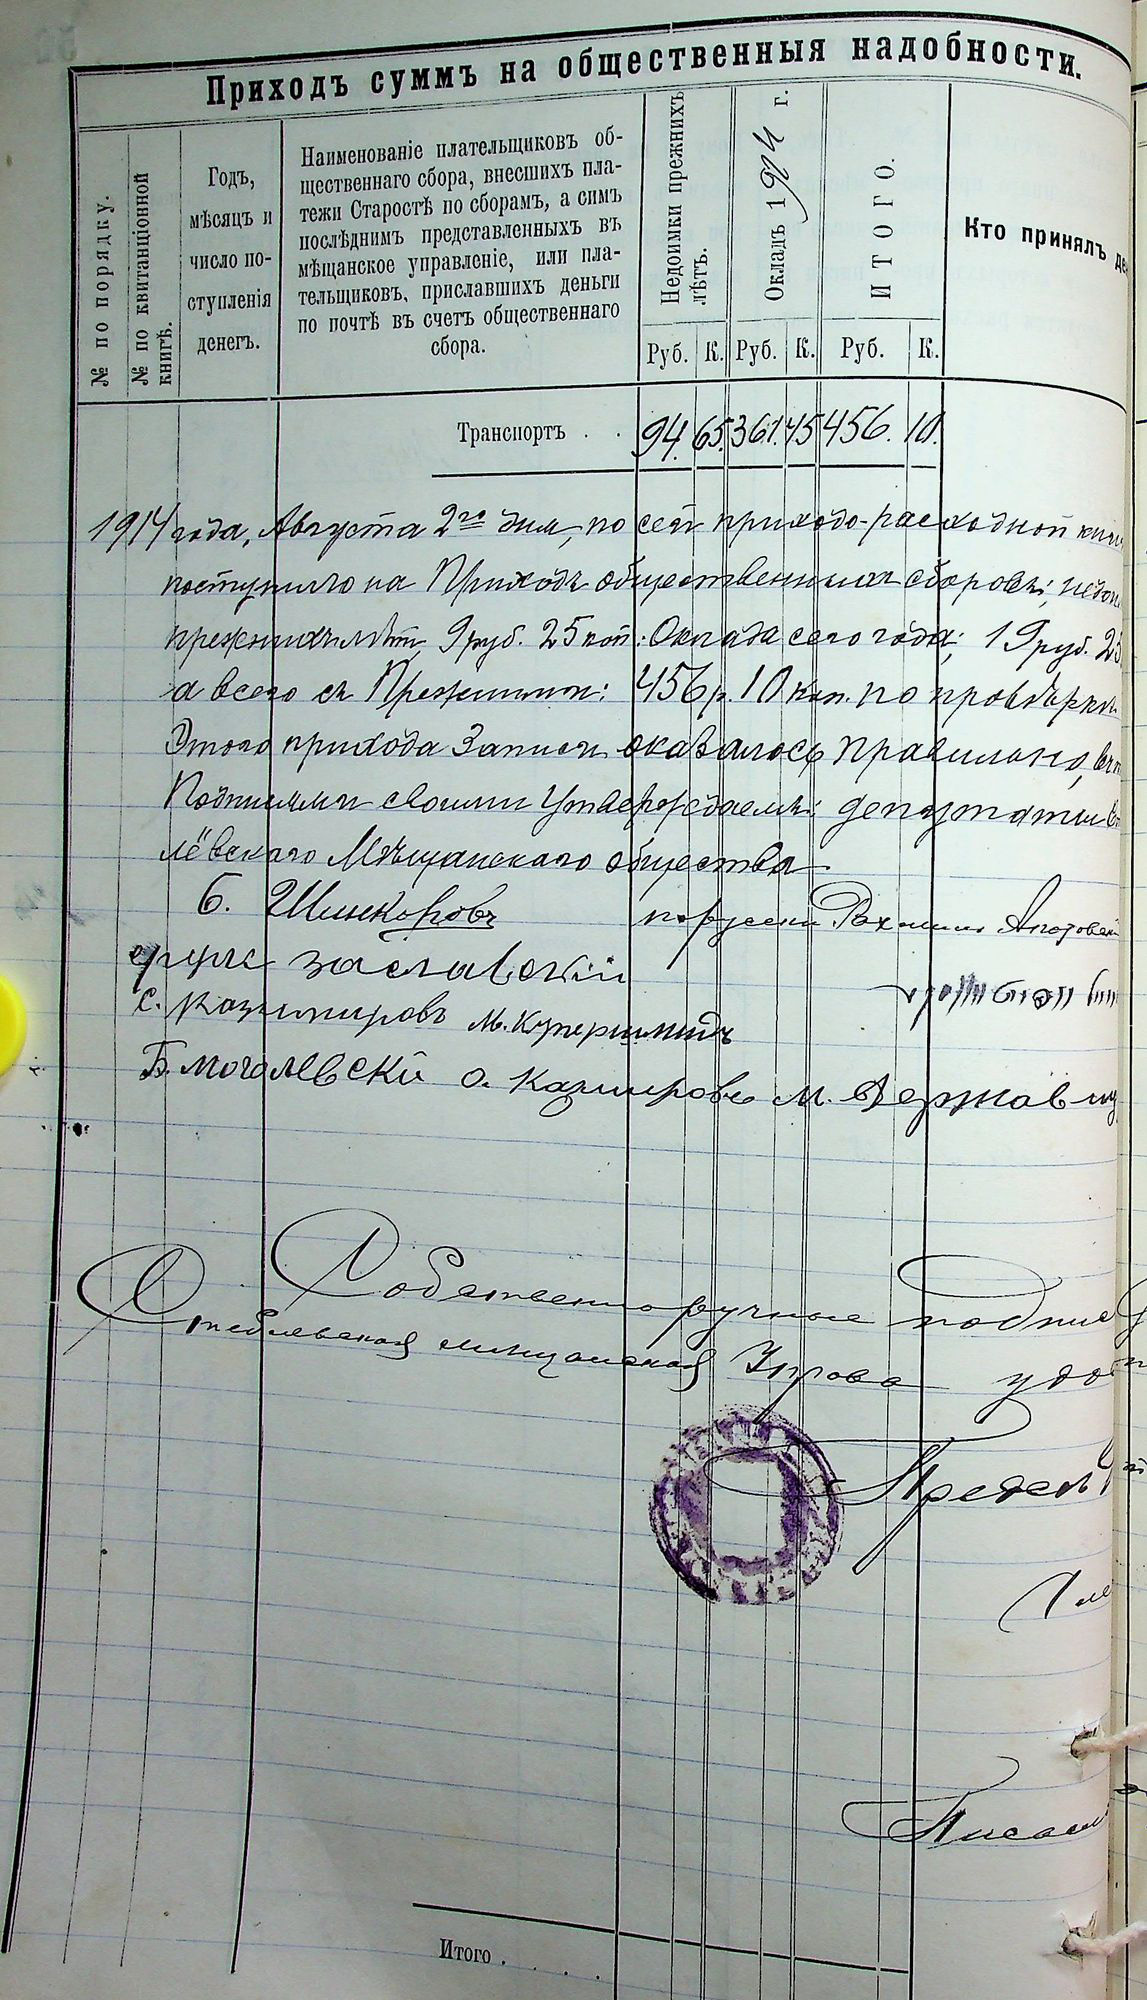 Приходъ суммъ на общественныя надобности.
№ по порядку.
№ по квитанціонной книгѣ.
Годъ,
мѣсяцъ и
число по-
ступленія
денегъ.
Наименованіе плательщиковъ об-
щественнаго сбора, внесшихъ пла-
тежи Старостѣ по сборамъ, а симъ
послѣднимъ представленныхъ въ
мѣщанское управленіе, или пла-
тельщиковъ, приславшихъ деньги
по почтѣ въ счетъ общественнаго
сбора.
Недоимки прежнихъ
лѣтъ.
Окладъ 1914 г.
ИТОГО.
Кто принялъ
Руб. К. Руб. К. Руб. К.
Транспортъ . . 94. 65. 361. 45 456. 10.
1914 года, Августа 2го дня, по сей приходо-расходной
поступило на Приходъ общественныхъ сборовъ;
прежнихъ лѣтъ, 9 руб. 25 коп: Оклада сего года; 19 руб.
а всего съ Прежними: 456 р. 10 коп. по провѣркѣ
Этого прихода Записи оказалось правильно,
Подписями своими Утверждаемъ: депутаты
лёвского Мѣщанскаго общества
Б. Шинкоровъ по русски
заславский
С. Казимировъ М. Купершмидъ
Б. Могилевский О. Казмировъ М.
Собственноручные
Стеблевская мищанская Управа
Итого . . . .